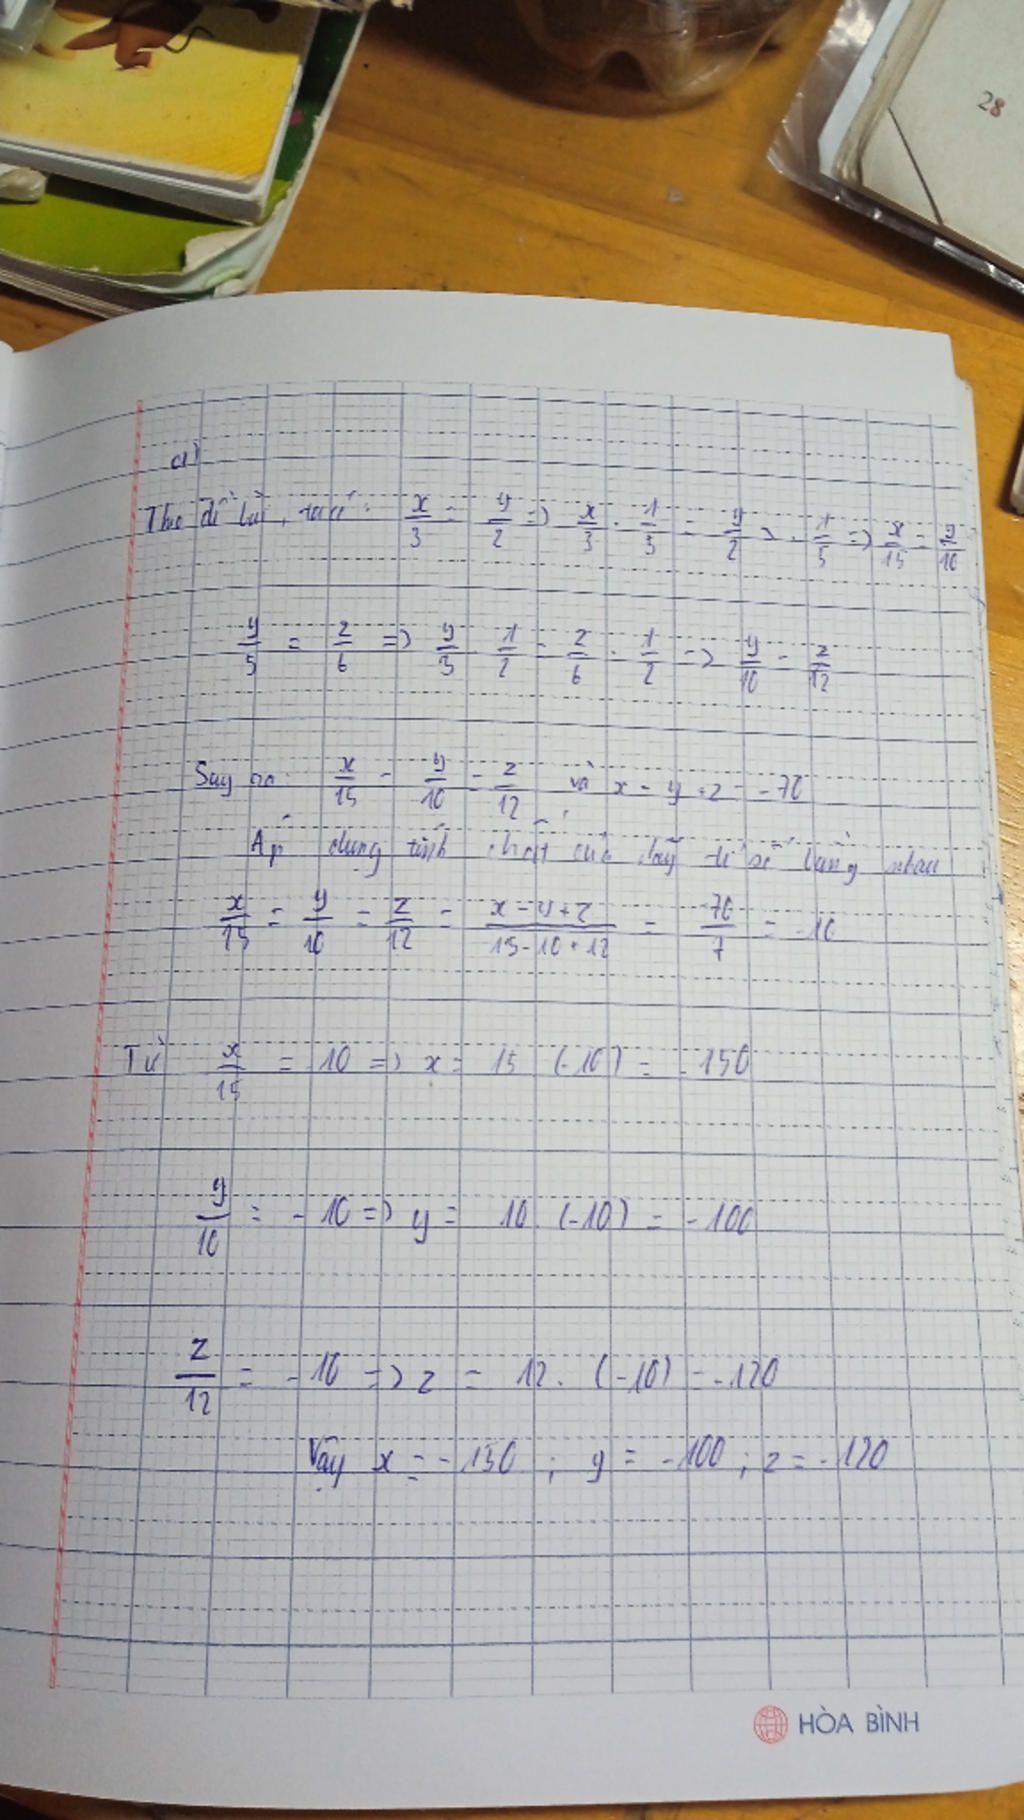 28
a)
Theo đề bài, ta có: x/3 = y/2 => x/3 . 1/5 = y/2 . 1/5 => x/15 = y/10
y/5 = z/6 => y/5 . 1/2 = z/6 . 1/2 => y/10 = z/12
Suy ra: x/15 = y/10 = z/12 và x - y + z = -70
Áp dụng tính chất của dãy tỉ số bằng nhau
x/15 = y/10 = z/12 = x-y+z/15-10+12 = -70/7 = -10
Từ x/15 = -10 => x = 15 (-10) = -150
y/10 = -10 => y = 10 (-10) = -100
z/12 = -10 => z = 12. (-10) = -120
Vậy x = -150 ; y = -100 ; z = -120
HÒA BÌNH